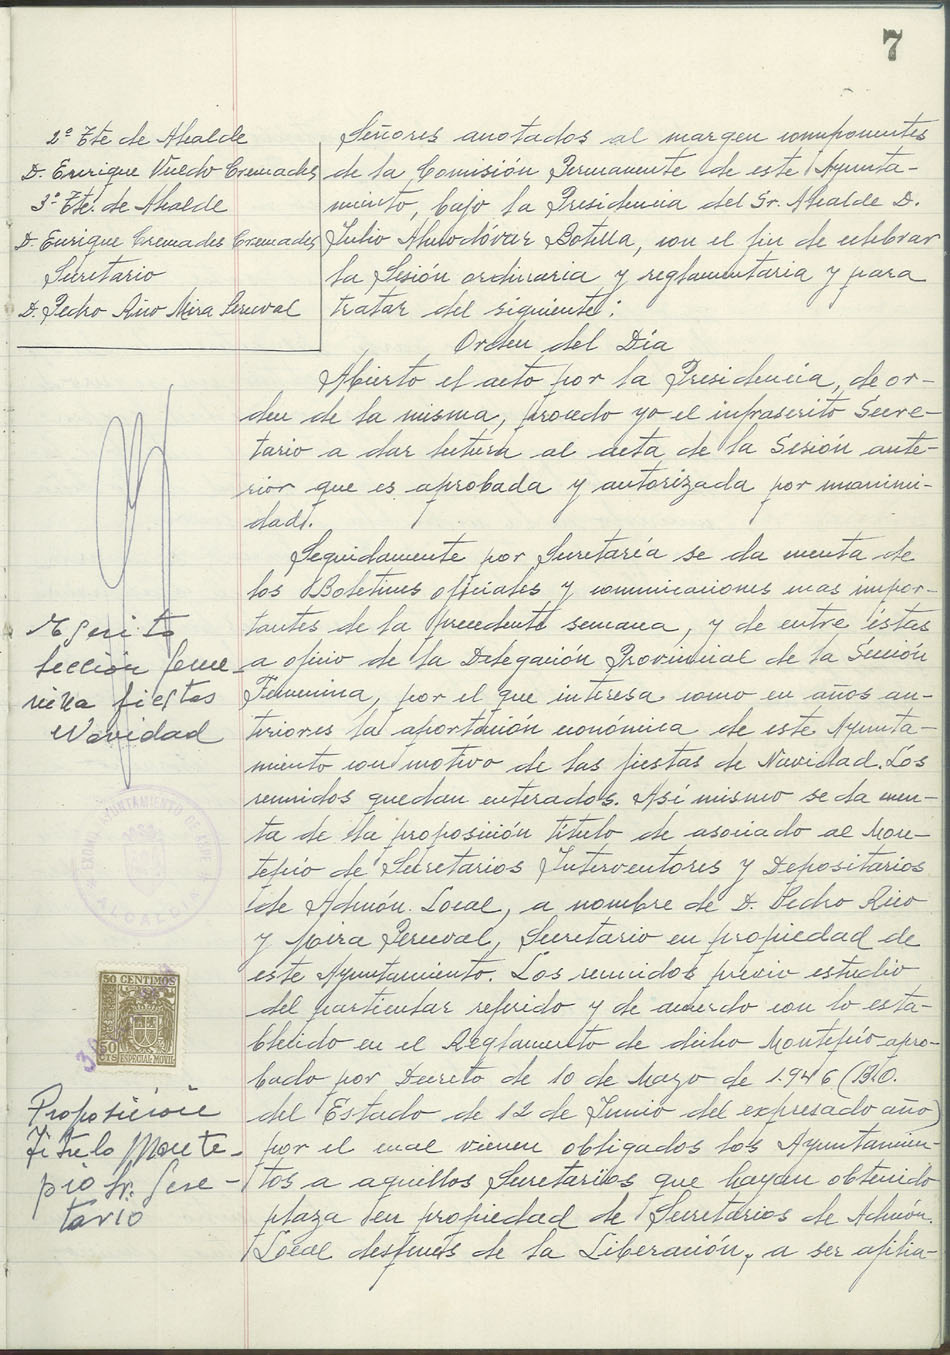 7
2º Tte de Alcalde
D. Enrique Vuedo Cremades
3º Tte. de Alcalde
D. Enrique Cremades Cremades
Secretario
D. Pedro Rico Mira Perceval
Señores anotados al margen componentes
de la Comisión Permanente de este Ayunta-
miento, bajo la Presidencia del Sr. Alcalde D.
Julio Almodóvar Botella, con el fin de celebrar
la Sesión ordinaria y reglamentaria y para
tratar del siguiente:
Orden del Día
Abierto el acto por la Presidencia, de or-
den de la misma, procedo yo el infrascrito Secre-
tario a dar lectura al acta de la Sesión ante-
rior que es aprobada y autorizada por unanimi-
dad.
Seguidamente por Secretaría se da cuenta de
los Boletines oficiales y comunicaciones mas impor-
tantes de la precedente semana, y de entre éstas
a oficio de la Delegación Provincial de la Sección
Femenina, por el que interesa como en años an-
teriores la aportación económica de este Ayunta-
miento con motivo de las fiestas de Navidad. Los
reunidos quedan enterados. Así mismo se da cuen-
ta de la proposición título de asociado al Mon-
tepío de Secretarios Interventores y Depositarios
de Admón. Local, a nombre de D. Pedro Rico
y Mira Perceval, Secretario en propiedad de
este Ayuntamiento. Los reunidos previo estudio
del particular referido y de acuerdo con lo esta-
blecido en el Reglamento de dicho Montepío apro-
bado por Decreto de 10 de Mayo de 1.946 (B.O.
del Estado de 12 de Junio del expresado año)
por el cual vienen obligados los Ayuntamien-
tos a aquellos Secretarios que hayan obtenido
plaza en propiedad de Secretarios de Admón.
Local después de la Liberación, a ser afilia-
Sección feme-
nina fiestas
Navidad
AYUNTAMIENTO DE
ALCALDIA
50 CENTIMOS
50
CTS ESPECIAL MOVIL
Proposición
Título Monte-
pío Sr. Secre-
tario